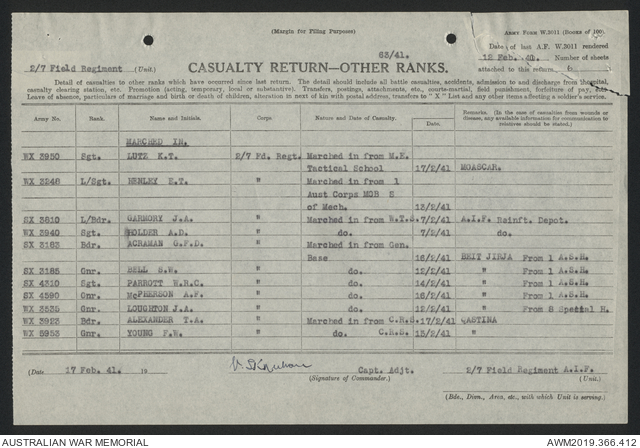 (Margin for Filing Purposes)
ARMY FORM W.3011 (BOOKS OF 100).
63/41.
Date of last A.F. W.3011 rendered
12 Feb. 40. Number of sheets
2/7 Field Regiment (Unit.)
CASUALTY RETURN—OTHER RANKS.
attached to this return.
Detail of casualties to other ranks which have occurred since last return. The detail should include all battle casualties, accidents, admission to and discharge from hospital,
casualty clearing station, etc. Promotion (acting, temporary, local or substantive). Transfers, postings, attachments, etc., courts-martial, field punishment, forfeiture of pay, etc.
Leave of absence, particulars of marriage and birth or death of children, alteration in next of kin with postal address, transfers to "X" List and any other items affecting a soldier's service.
Army No. Rank. Name and Initials. Corps. Nature and Date of Casualty. Date. Remarks. (In the case of casualties from wounds or disease, any available information for communication to relatives should be stated.)
MARCHED IN.
WX 3950 Sgt. LUTZ K.T. 2/7 Fd. Regt. Marched in from M.E.
Tactical School 17/2/41 MOASCAR.
WX 3248 L/Sgt. HENLEY E.T. " Marched in from 1
Aust Corps MOB S
of Mech. 13/2/41
SX 3810 L/Bdr. GARMORY J.A. " Marched in from W.T.S. 7/2/41 A.I.F. Reinft. Depot.
WX 3940 Sgt. HOLDER A.D. " do. 7/2/41 do.
SX 3183 Bdr. ACRAMAN G.F.D. " Marched in from Gen.
Base 16/2/41 BEIT JIRJA From 1 A.S.H.
SX 3185 Gnr. BELL S.W. " do. 12/2/41 " From 1 A.S.H.
SX 4310 Sgt. PARROTT W.R.C. " do. 14/2/41 " From 1 A.S.H.
SX 4590 Gnr. McPHERSON A.F. " do. 12/2/41 " From 1 A.S.H.
WX 3535 Gnr. LOUGHTON J.A. " do. 16/2/41 " From 8 Special H.
WX 3923 Bdr. ALEXANDER T.A. " Marched in from C.R.S. 17/2/41 QASTINA
WX 5953 Gnr. YOUNG F.W. " do. C.R.S. 15/2/41 "
(Date 17 Feb. 41. 19 Capt. Adjt. 2/7 Field Regiment A.I.F.
(Signature of Commander.) (Unit.)
(Bde., Divn., Area, etc., with which Unit is serving.)
AUSTRALIAN WAR MEMORIAL
AWM2019.366.412